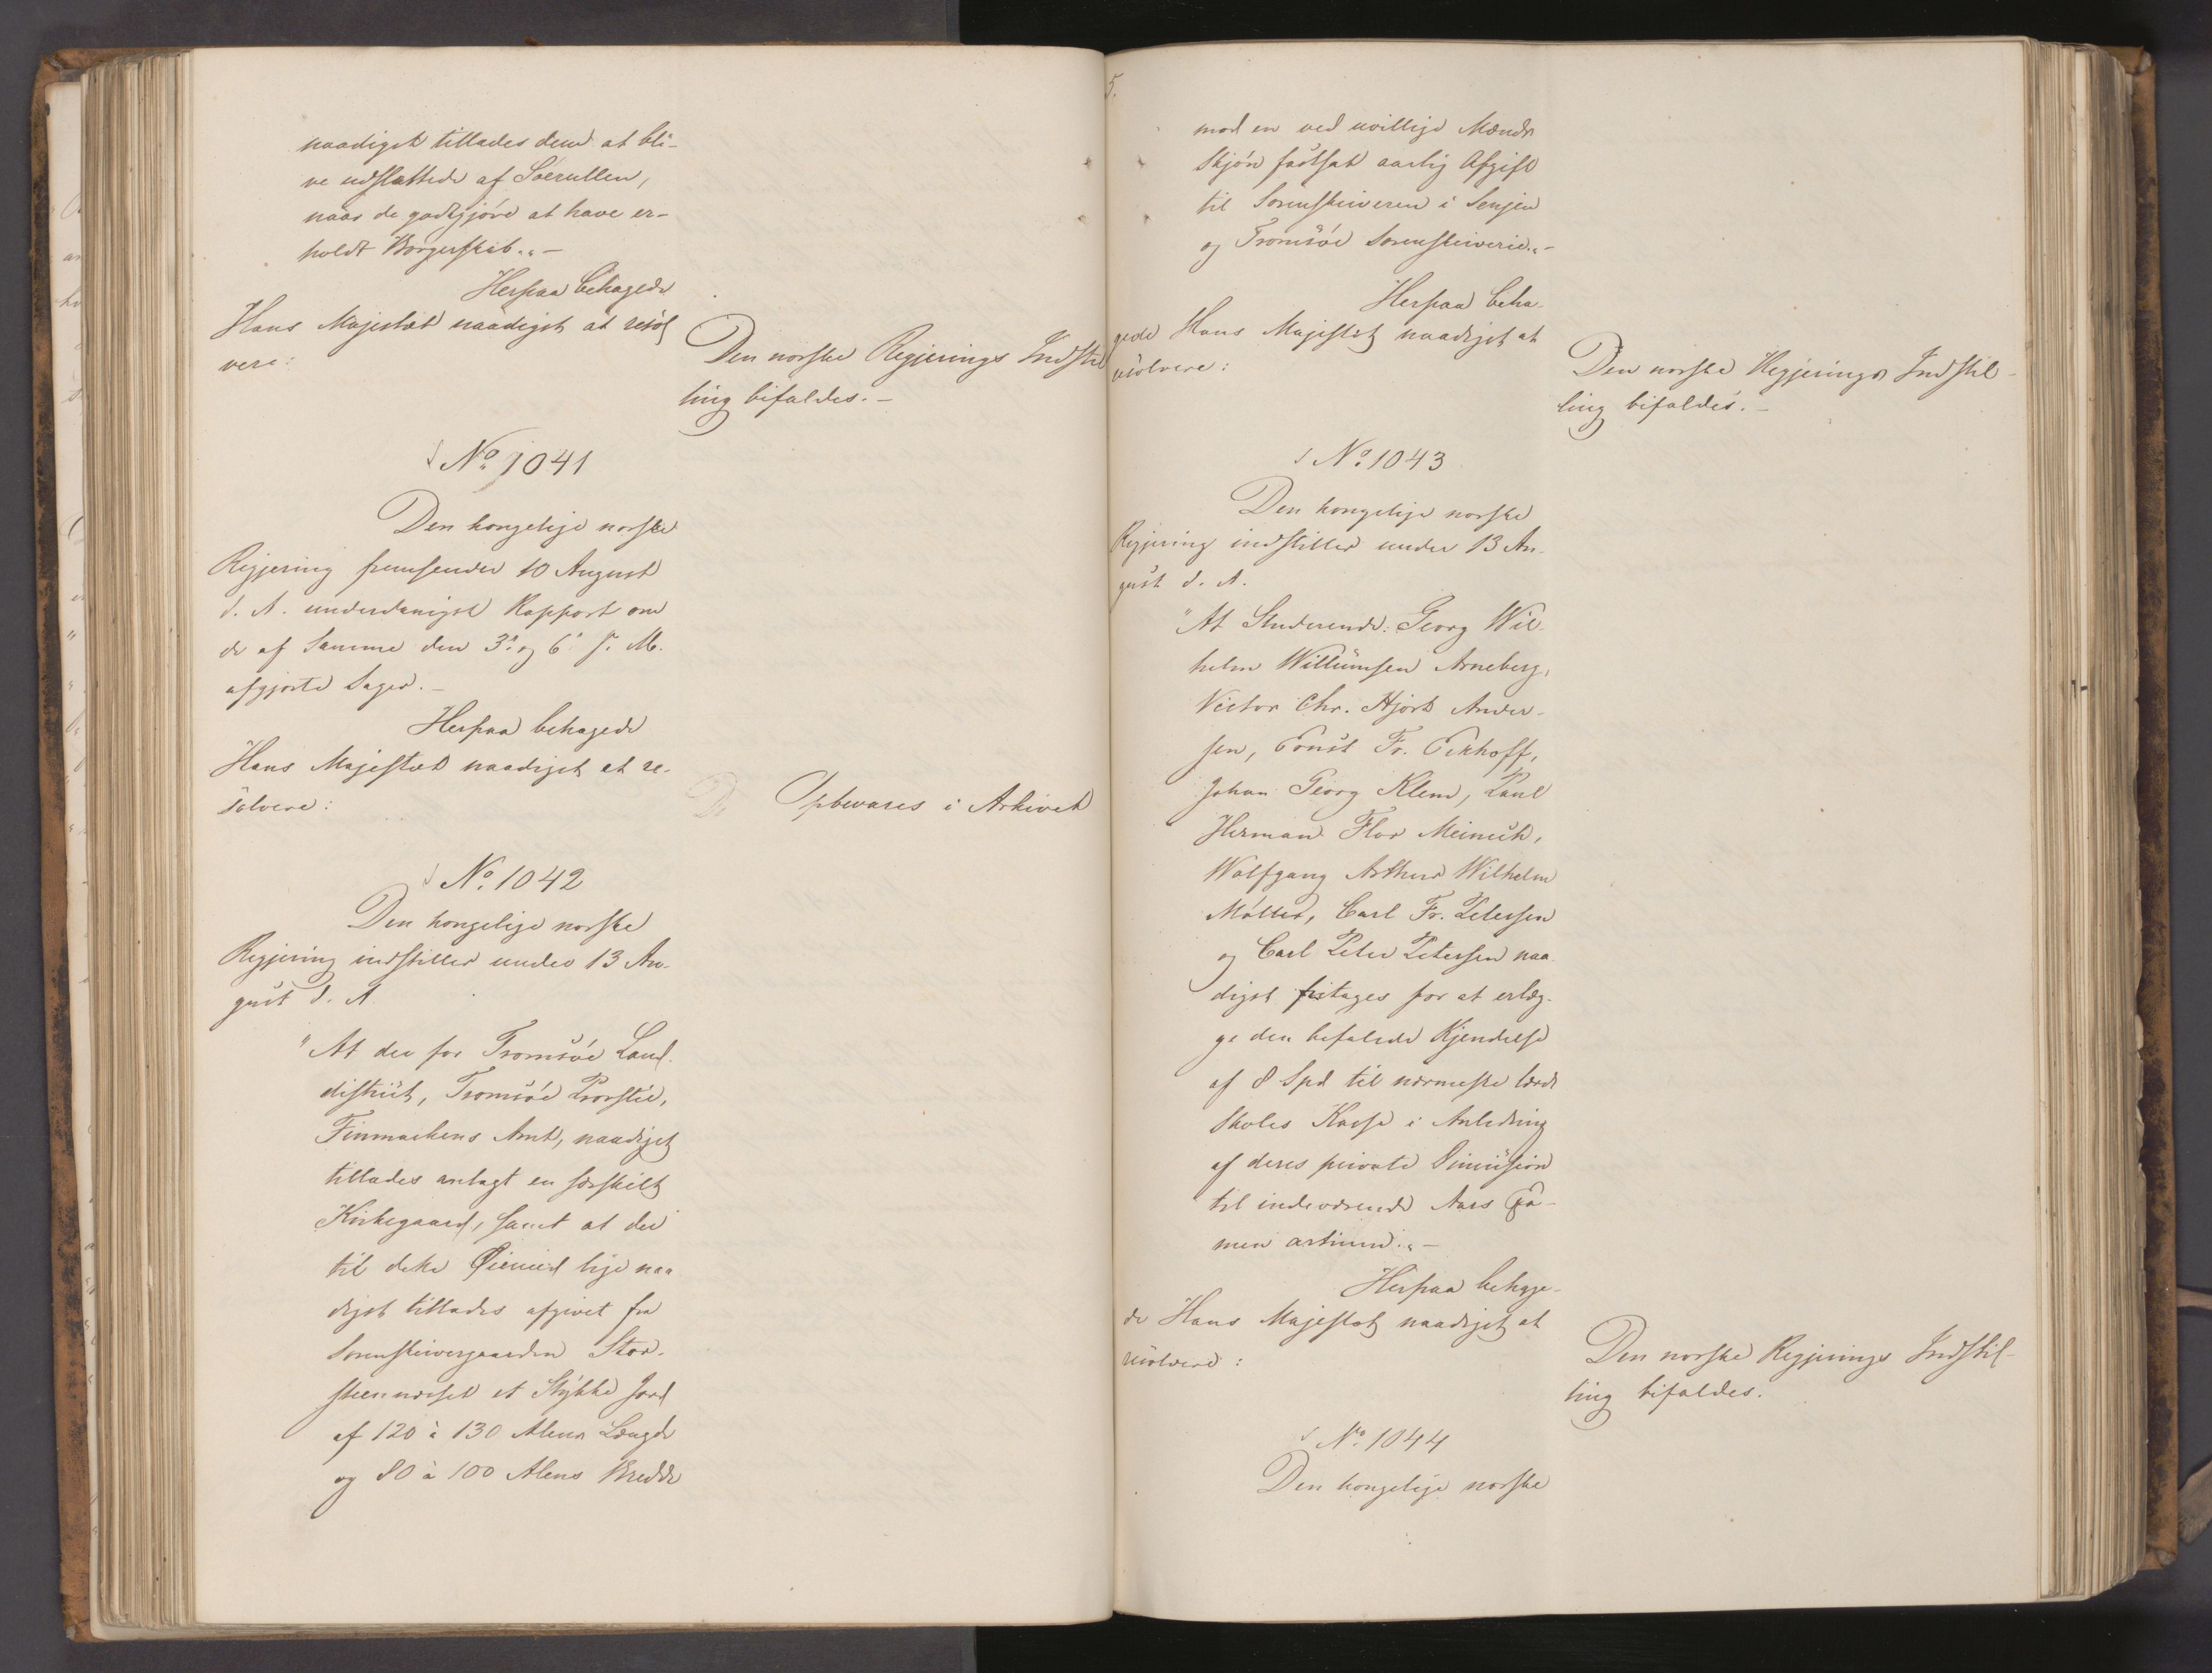 naadigst tillades dem at bli-
ve udslettede af Söerullen,
naar de godtgjöre at have er-
holdt Borgerskab."-
Herpaa behagede
Hans Majestæt naadigst at resol
vere:
Den norske Regjerings Indstil
ling bifaldes.-
No 1041
Den kongelige norske
Regjering fremsender 10 August
d. A. underdanigst Rapport om
de af Samme den 3. og 6. s. M.
afgjorte Sager.-
Herpaa behagede
Hans Majestæt naadigst at re-
solvere:
Opbevares i Arkivet
No. 1042
Den kongelige norske
Regjering indstiller under 13 Au-
gust d. A
"At der for Tromsöe Land-
distrikt, Tromsöe Provstie,
Finmarkens Amt, naadigst
tillades anlagt en særskilt
Kirkegaard, samt at der
til dette Öiemed lige naa
digst tillades afgivet fra
Sorenskrivergaarden Stor-
steennæsset et Stykke Jord
af 120 à 130 Alens Længde
og 80 à 100 Alens Bredde
5.
mod en ved uvillige Mænds
Skjön fastsat aarlig Afgift
til Sorenskriveren i Senjen
og Tromsöe Sorenskriverie."-
Herpaa beha-
gede Hans Majestæt naadigst at
resolvere:
Den norske Regjerings Indstil-
ling bifaldes.-
No. 1043
Den kongelige norske
Regjering indstiller under 13 Au-
gust d. A.
"At Studerende: Georg Wil-
helm Willumsen Arneberg,
Victor Chr. Hjort Ander-
sen, Ernst Fr. Eckhoff,
Johan Georg Klem, Paul
Herman Flor Meinich,
Wolfgang Arthur Wilhelm
Möller, Carl Fr. Petersen
og Carl Peter Petersen naa-
digst fritages for at erlæg-
ge den befalede Kjendelse
af 8 Spd til nærmeste lærde
Skoles Kasse i Anledning
af deres private Dimission
til indeværende Aars Exa-
men artium."-
Herpaa behage-
de Hans Majestæt naadigst at
resolvere:
Den norske Regjerings Indstil-
ling bifaldes.
No. 1044
Den kongelige norske